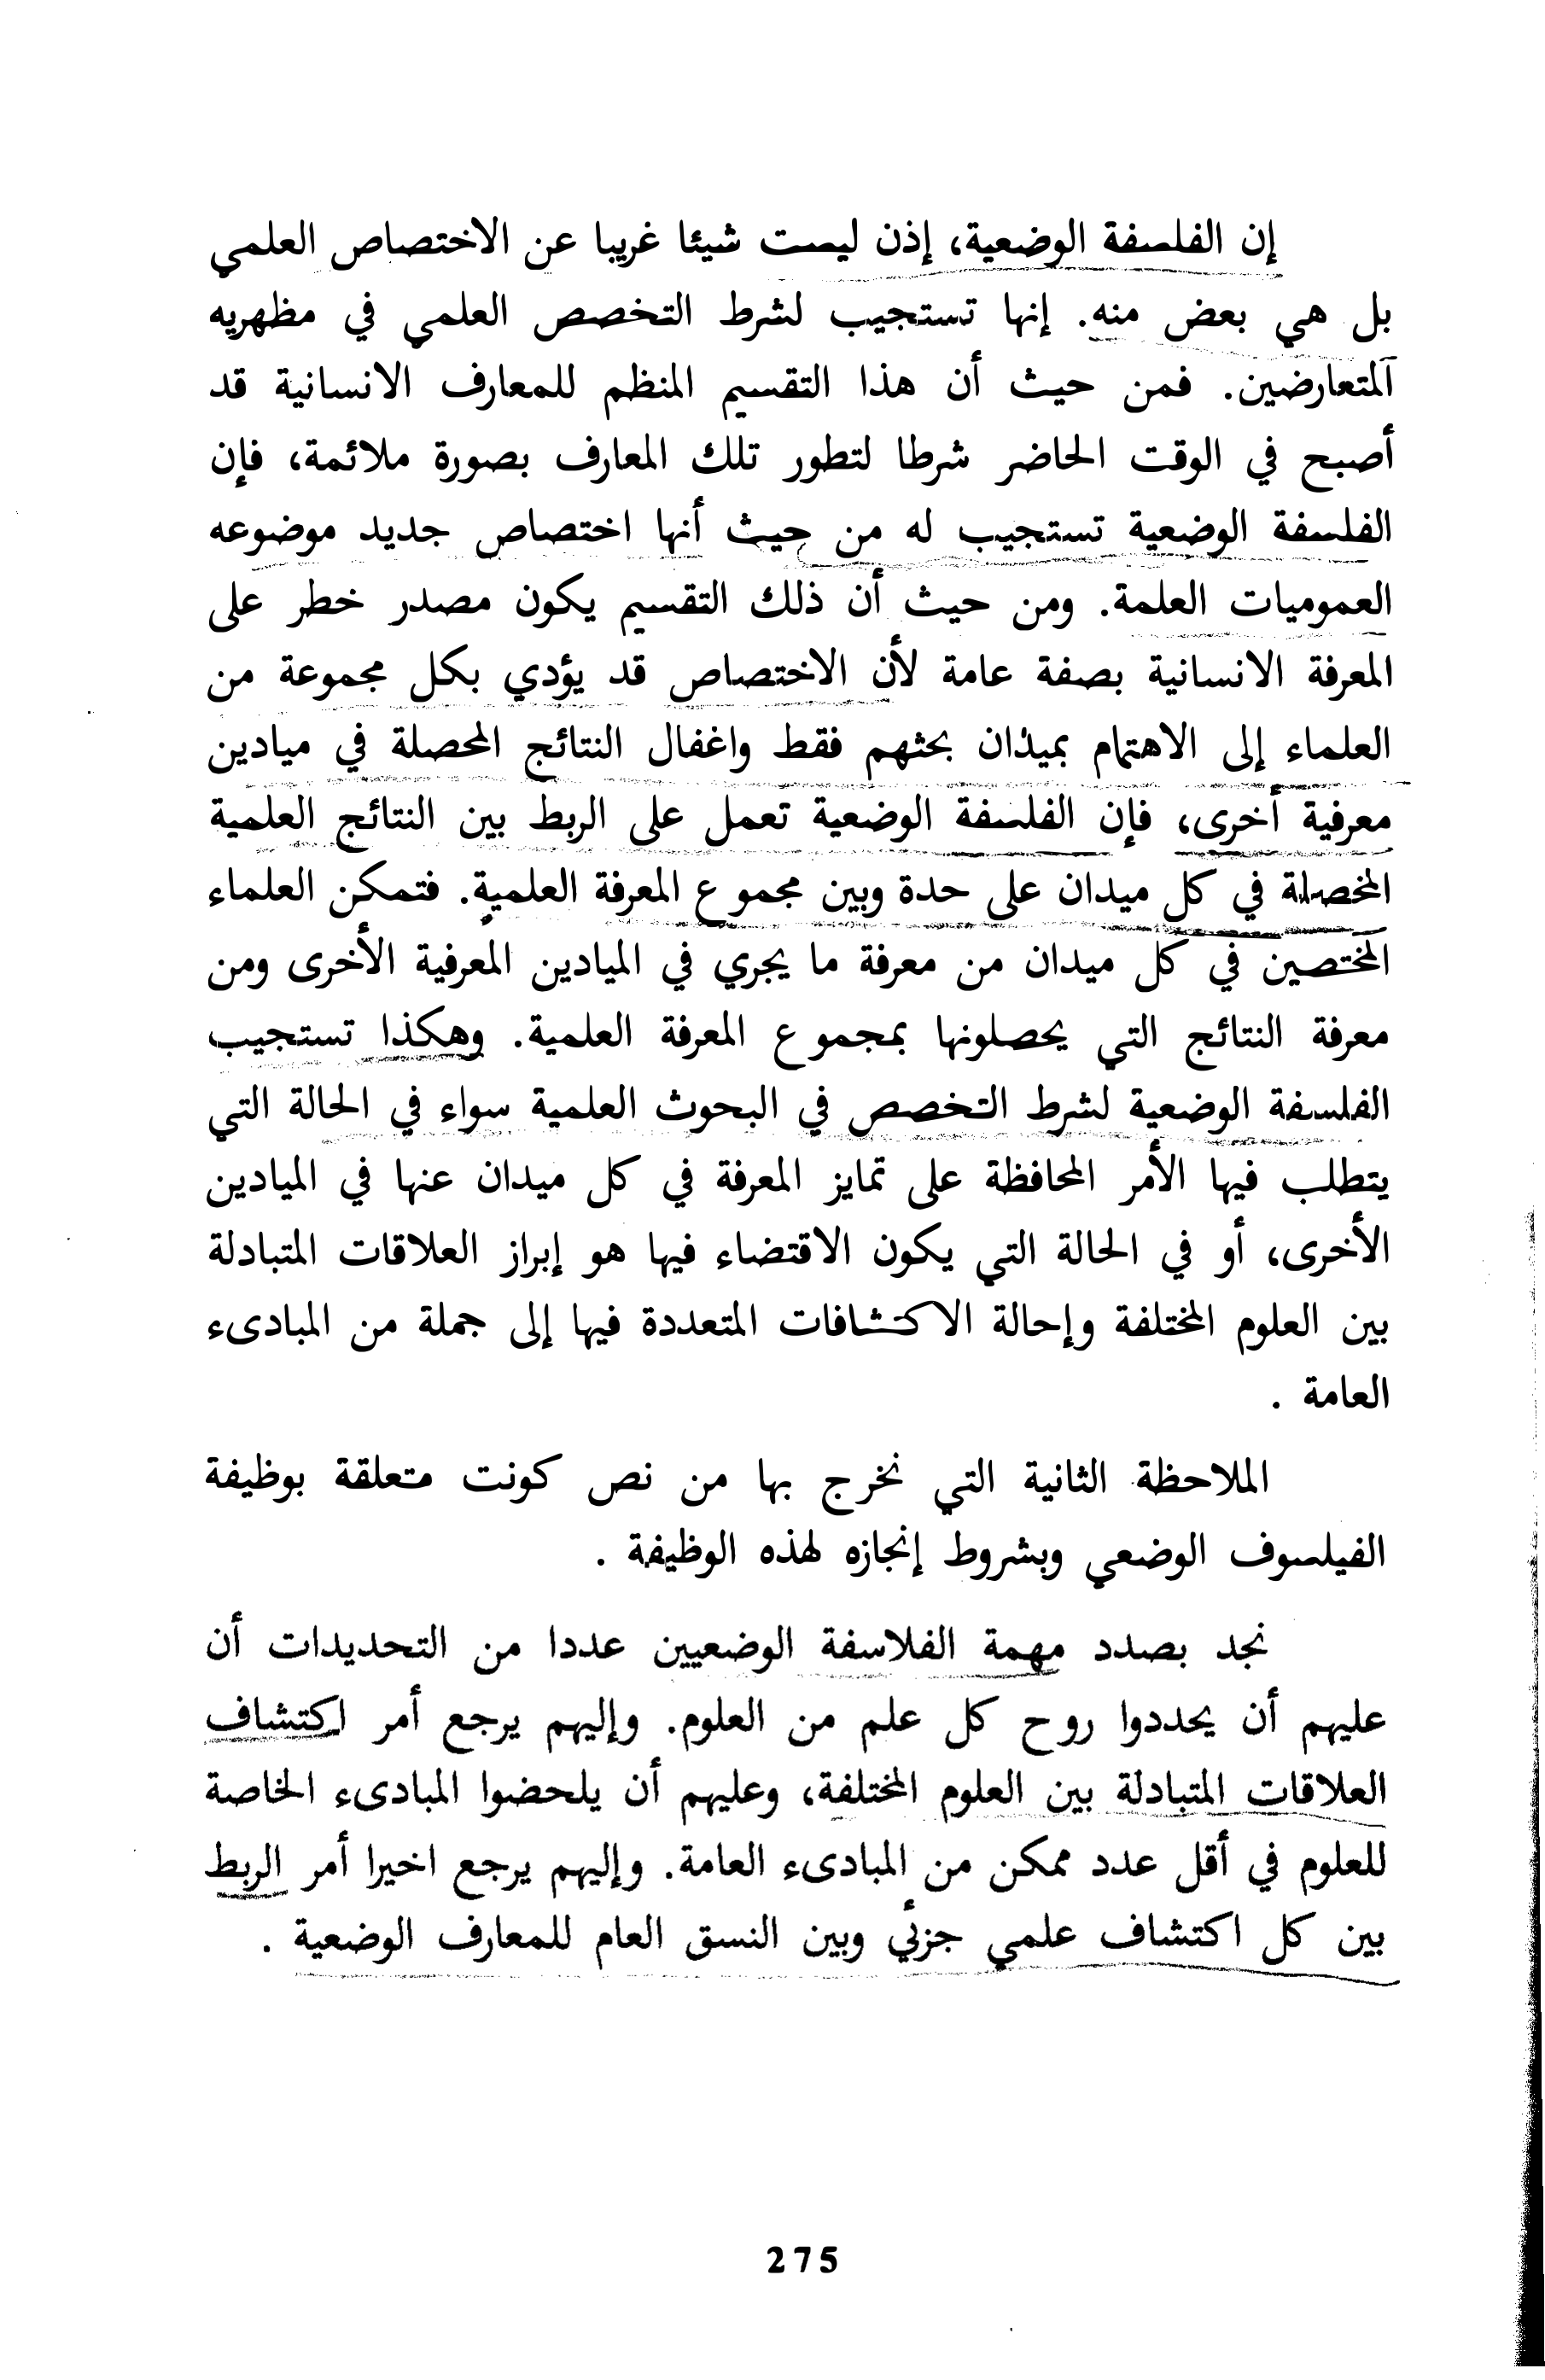 إن الفلسفة الوضعية، إذن ليست شيئا غريبا عن الاختصاص العلمي
بل هي بعض منه. إنها تستجيب لشرط التخصص العلمي في مظهريه
المتعارضين. فمن حيث أن هذا التقسيم المنظم للمعارف الانسانية قد
أصبح في الوقت الحاضر شرطا لتطور تلك المعارف بصورة ملائمة، فإن
الفلسفة الوضعية تستجيب له من حيث أنها اختصاص جديد موضوعه
العموميات العلمة. ومن حيث أن ذلك التقسيم يكون مصدر خطر على
المعرفة الانسانية بصفة عامة لأن الاختصاص قد يؤدي بكل مجموعة من
العلماء إلى الاهتمام بميدان بحثهم فقط واغفال النتائج المحصلة في ميادين
معرفية أخرى، فإن الفلسفة الوضعية تعمل على الربط بين النتائج العلمية
المحصلة في كل ميدان على حدة وبين مجموع المعرفة العلمية. فتمكن العلماء
المختصين في كل ميدان من معرفة ما يجري في الميادين المعرفية الأخرى ومن
معرفة النتائج التي يحصلونها بمجموع المعرفة العلمية. وهكذا تستجيب
الفلسفة الوضعية لشرط التخصص في البحوث العلمية سواء في الحالة التي
يتطلب فيها الأمر المحافظة على تمايز المعرفة في كل ميدان عنها في الميادين
الأخرى، أو في الحالة التي يكون الاقتضاء فيها هو إبراز العلاقات المتبادلة
بين العلوم المختلفة وإحالة الاكتشافات المتعددة فيها إلى جملة من المبادىء
العامة .
الملاحظة الثانية التي نخرج بها من نص كونت متعلقة بوظيفة
الفيلسوف الوضعي وبشروط إنجازه لهذه الوظيفة .
نجد بصدد مهمة الفلاسفة الوضعيين عددا من التحديدات أن
عليهم أن يحددوا روح كل علم من العلوم. وإليهم يرجع أمر اكتشاف
العلاقات المتبادلة بين العلوم المختلفة، وعليهم أن يلحضوا المبادىء الخاصة
للعلوم في أقل عدد ممكن من المبادىء العامة. وإليهم يرجع اخيرا أمر الربط
بين كل اكتشاف علمي جزئي وبين النسق العام للمعارف الوضعية .
275